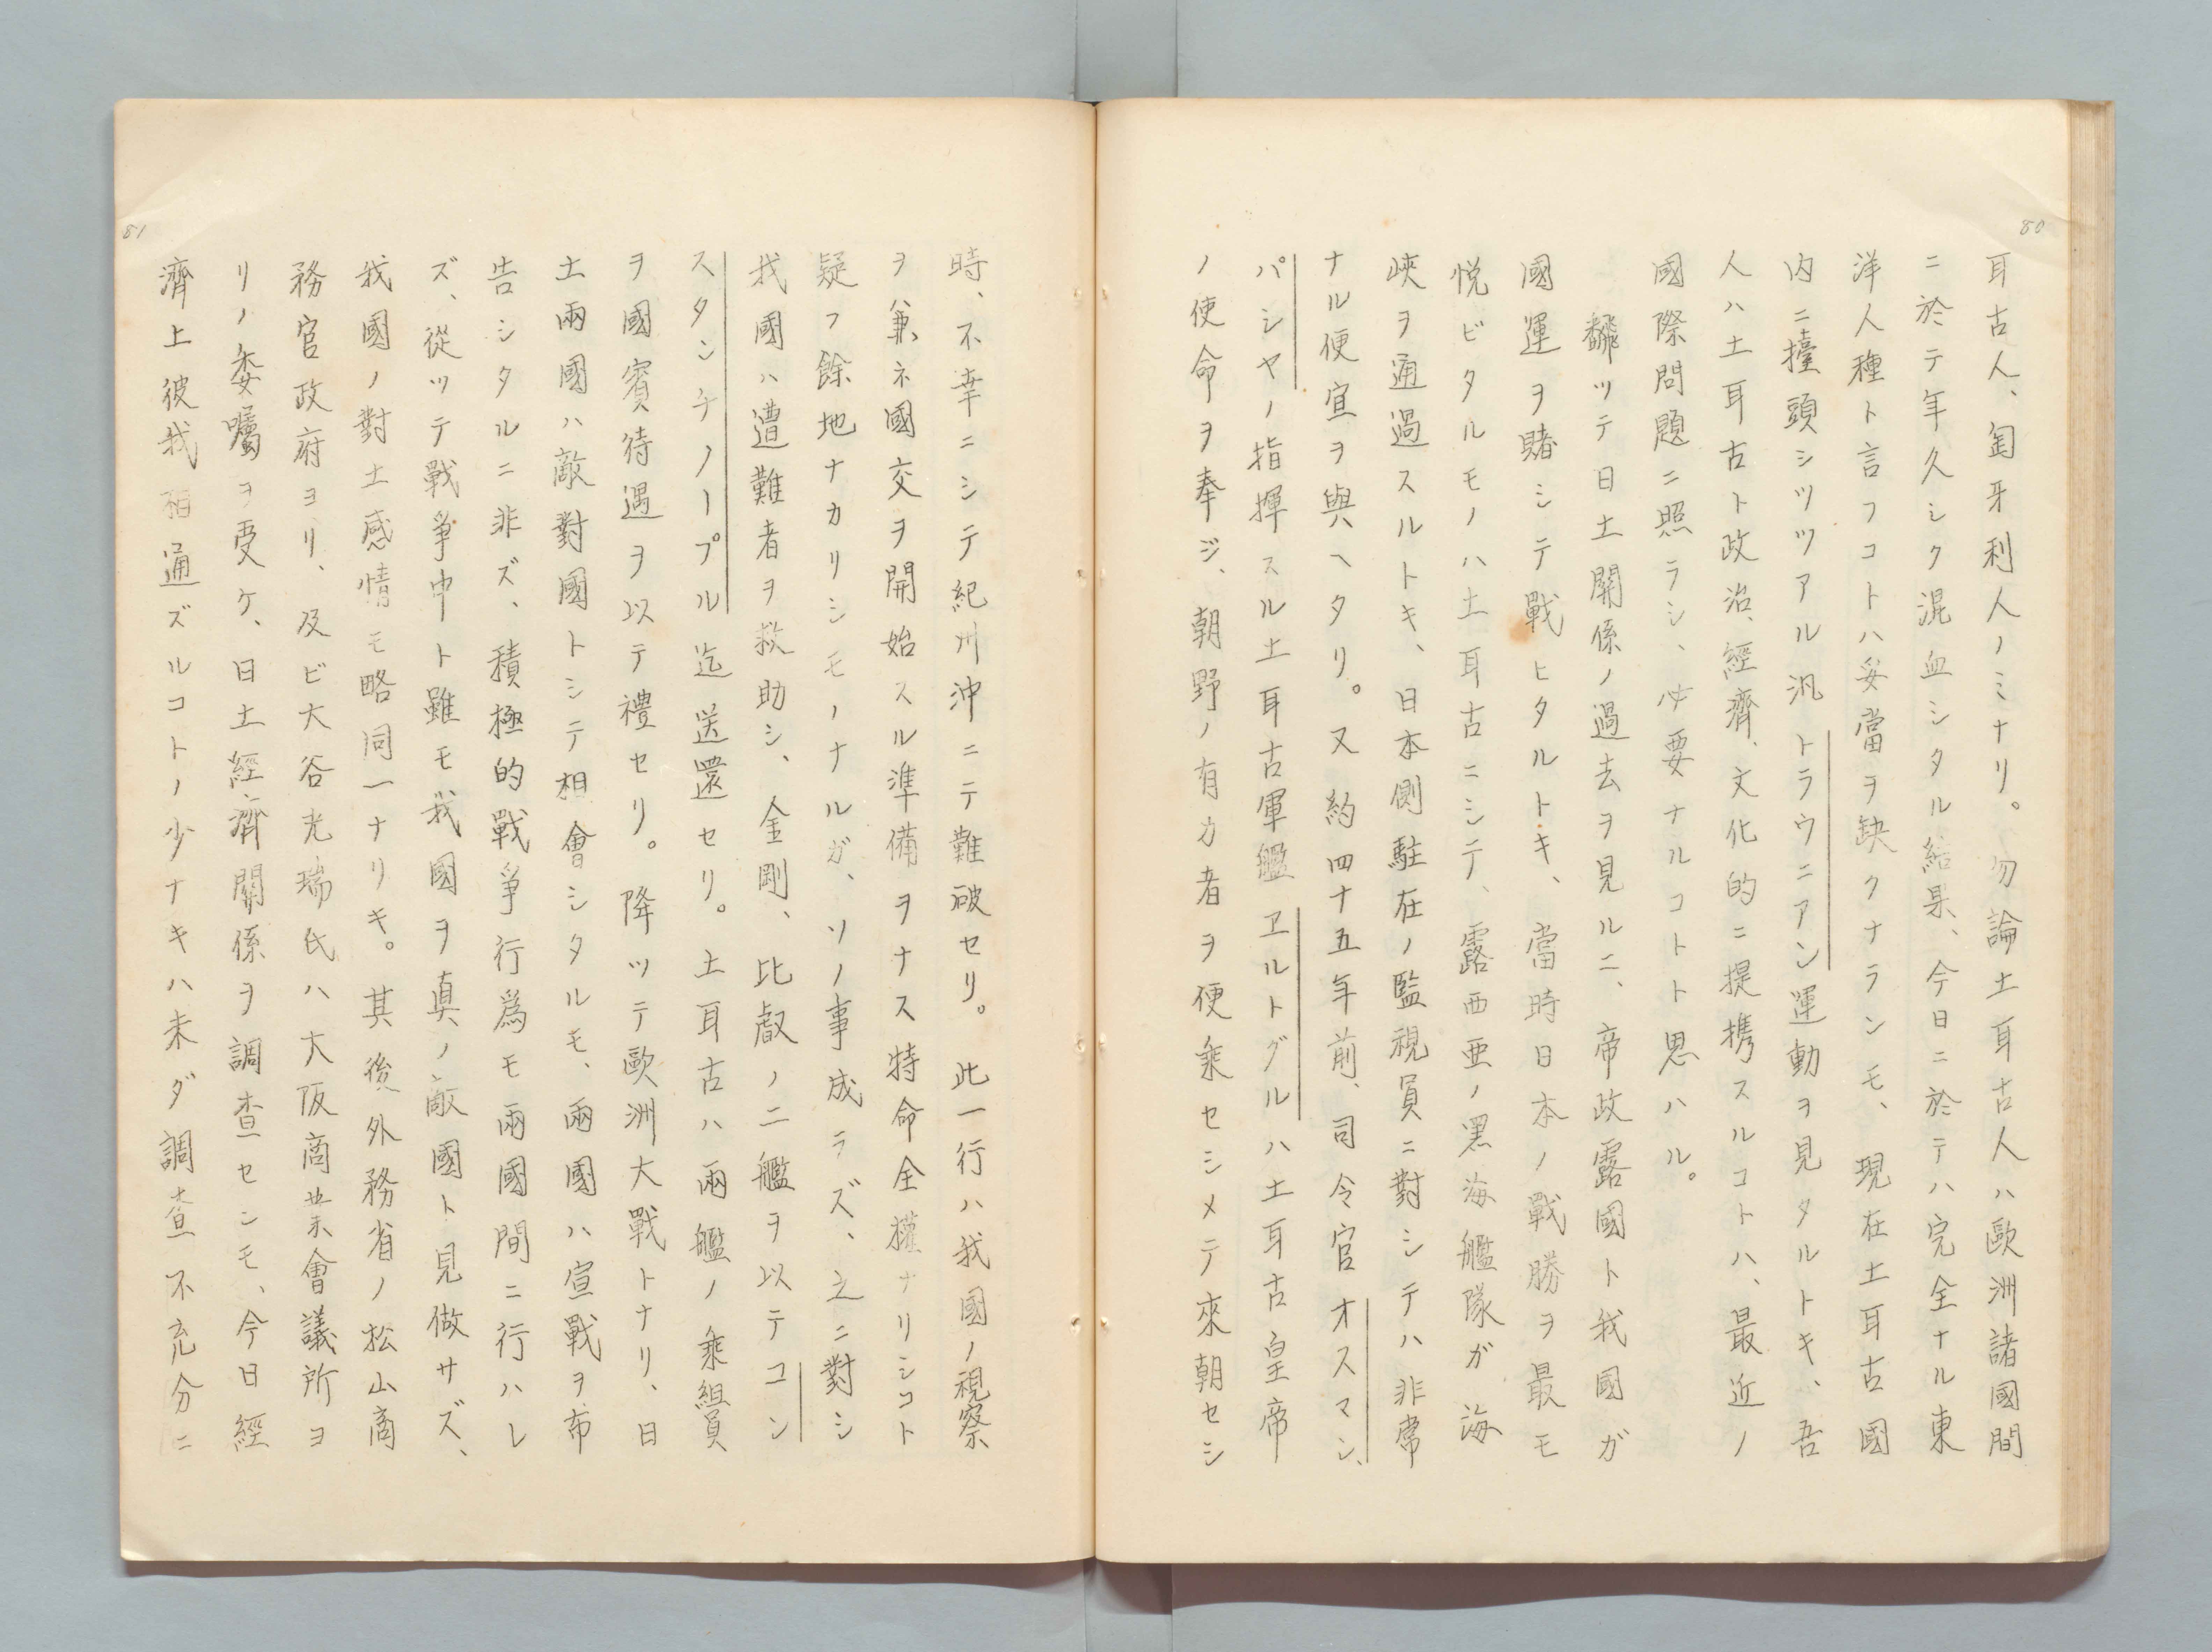 80
耳古人、匈牙利人ノミナリ。勿論土耳古人ハ歐洲諸國間
ニ於テ年久シク混血シタル結果、今日ニ於テハ完全ナル東
洋人種ト言フコトハ妥當ヲ缺クナランモ、現在土耳古國
内ニ擡頭シツツアル汎トラウニアン運動ヲ見タルトキ、吾
人ハ土耳古ト政治、經濟、文化的ニ提携スルコトハ、最近ノ
國際問題ニ照ラシ、必要ナルコトト思ハル。
飜ツテ日土關係ノ過去ヲ見ルニ、帝政露國ト我國ガ
國運ヲ賭シテ戰ヒタルトキ、當時日本ノ戰勝ヲ最モ
悦ビタルモノハ土耳古ニシテ、露西亜ノ黒海艦隊ガ海
峽ヲ通過スルトキ、日本側駐在ノ監視員ニ對シテハ非常
ナル便宜ヲ與ヘタリ。又約四十五年前、司令官オスマン、
パシヤノ指揮スル土耳古軍艦ヱルトグルハ土耳古皇帝
ノ使命ヲ奉ジ、朝野ノ有力者ヲ便乘セシメテ來朝セシ
81
時、不幸ニシテ紀州沖ニテ難破セリ。此一行ハ我國ノ視察
ヲ兼ネ國交ヲ開始スル準備ヲナス特命全權ナリシコト
疑フ餘地ナカリシモノナルガ、ソノ事成ラズ、之ニ對シ
我國ハ遭難者ヲ救助シ、金剛、比叡ノ二艦ヲ以テコン
スタンチノープル迄送還セリ。土耳古ハ兩艦ノ乘組員
ヲ國賓待遇ヲ以テ禮セリ。降ツテ歐洲大戰トナリ、日
土兩國ハ敵對國トシテ相會シタルモ、兩國ハ宣戰ヲ布
告シタルニ非ズ、積極的戰爭行爲モ兩國間ニ行ハレ
ズ、從ツテ戰爭中ト雖モ我國ヲ真ノ敵國ト見做サズ、
我國ノ對土感情モ略同一ナリキ。其後外務省ノ松山商
務官政府ヨリ、及ビ大谷光瑞氏ハ大阪商業會議所ヨ
リノ委囑ヲ受ケ、日土經濟關係ヲ調査セシモ、今日經
濟上彼我相通ズルコトノ少ナキハ未ダ調査不充分ニ